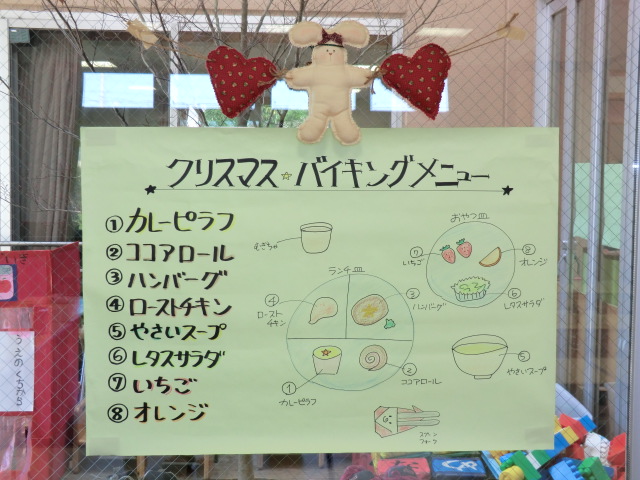 クリスマス☆バイキングメニュー
①カレーピラフ
②ココアロール
③ハンバーグ
④ローストチキン
⑤やさいスープ
⑥レタスサラダ
⑦いちご
⑧オレンジ
むぎちゃ
おやつ皿
⑦
いちご
⑧
オレンジ
⑥
レタスサラダ
ランチ皿
④
ロースト
チキン
③
ハンバーグ
①
カレーピラフ
②
ココアロール
⑤
やさいスープ
スプーン
フォーク
うえの くちから